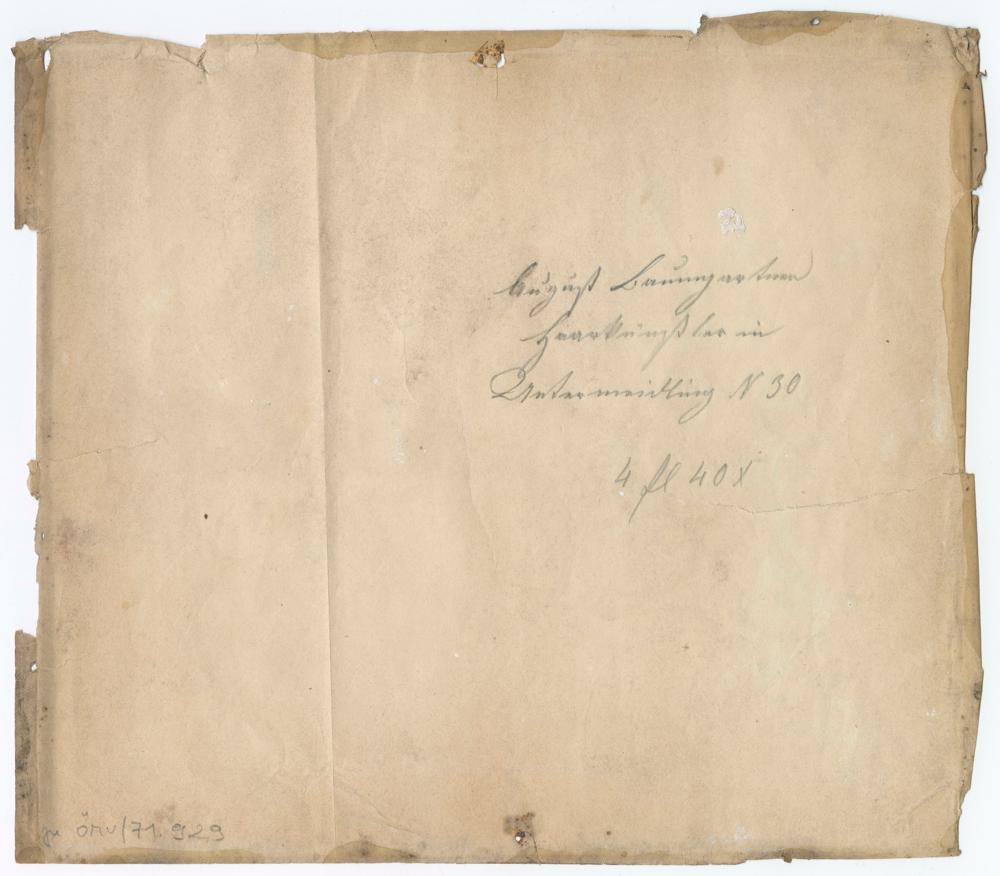 August Baumgartner
Haarkünstler in
Untermeidling N 30
4 fl 40 x
zu ÖMV/71.929